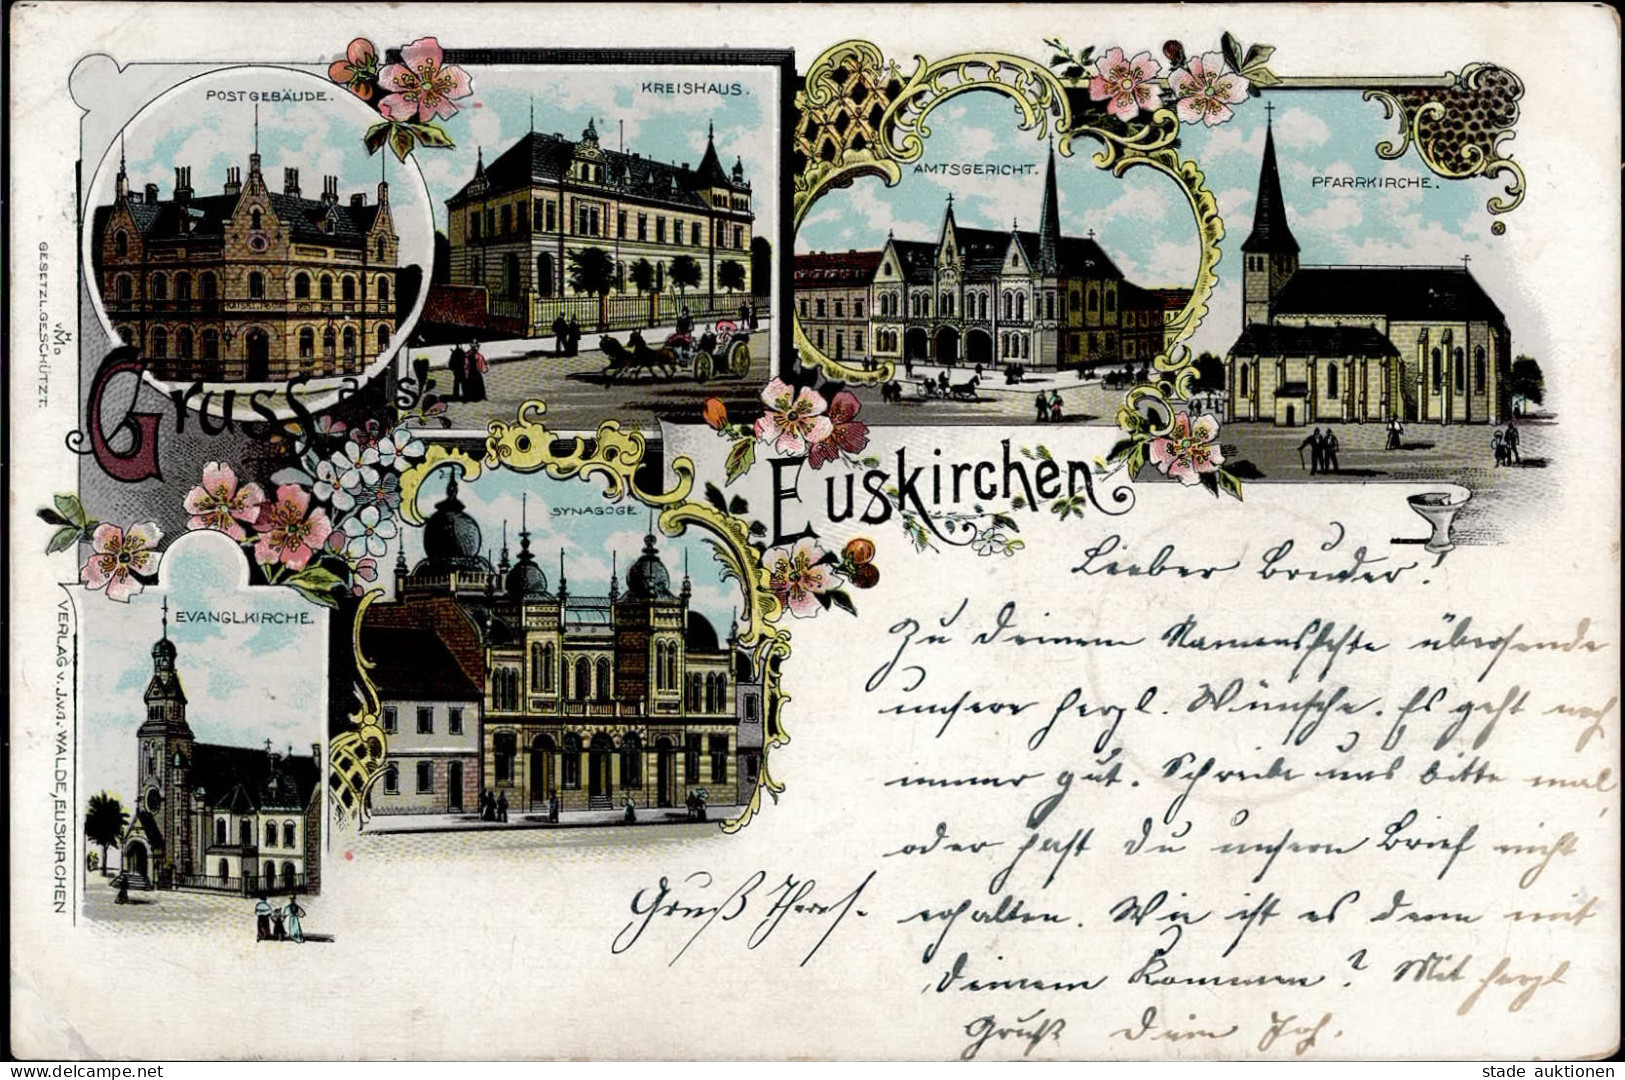 POSTGEBÄUDE.
KREISHAUS.
AMTSGERICHT.
PFARRKIRCHE.
GESETZL. GESCHÜTZT.
Gruss aus
Euskirchen
SYNAGOGE.
EVANGL. KIRCHE.
VERLAG v. J. v. d. WALDE, EUSKIRCHEN
Lieber Bruder!
Zu Deinem Namensfeste übersende
unsere herzl. Wünsche. Es geht noch
immer gut. Schreibe uns bitte mal,
oder hast Du unsern Brief nicht
erhalten. Wie ist es denn mit
Deinem Kommen? Mit herzl
Gruß Dein Joh.
Gruß Theres.
stade auktionen